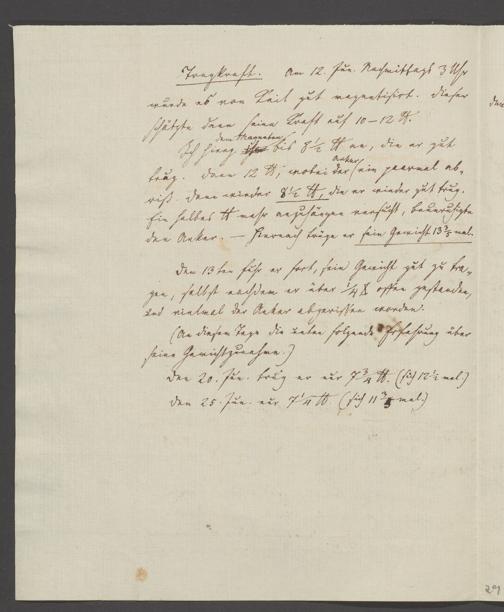 Tragkraft. Am 12. Jun. Nachmittags 3 Uhr
wurde es von Keil gut magnetisirt. Dieser
schätzte dann seine Kraft auf 10–12 ℔.
Ich hieng dem Magneten bis 8 1/2 ℔ an, die er gut
trug. Dann 12 ℔, wobei der Anker ein paarmal ab-
riß. Dann wieder 8 1/2 ℔, die er wieder gut trug.
Ein halbes ℔ mehr anzuhängen versucht,
den Anker. — Hiernach trüge er sein Gewicht 13 mal.
Den 13ten fuhr er fort, sein Gewicht gut zu tra-
gen, selbst nachdem er über 1/4 offen gestanden,
und viermal der Anker abgerissen worden.
(An diesem Tage die unten folgende Erfahrung über
seine Gewichtzunahme.)
Den 20. Jun. trug er nur 7 3/4 ℔. (sich 12 1/2 mal)
Den 25. Jun. nur 7 1/4 ℔ (sich 11 mal)
den
29